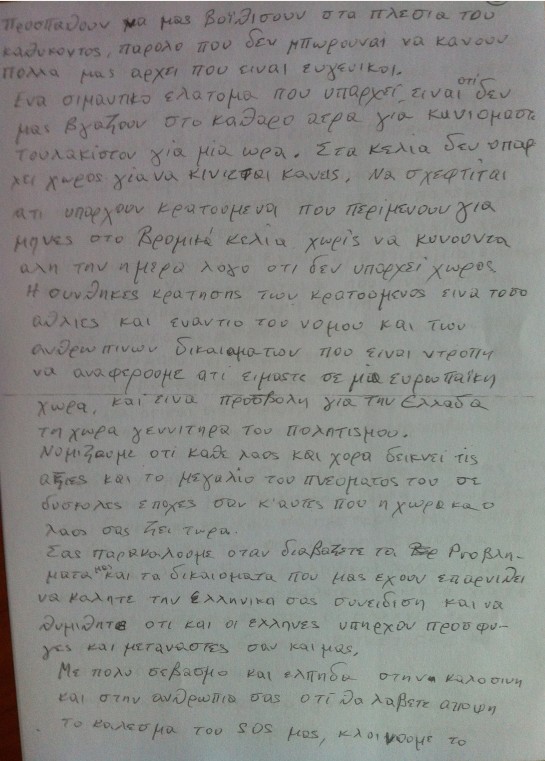 προσπαθουν να μας βοϊθισουν στα πλεσια του
καθυκοντος, παρολο που δεν μπωρουναι να κανουν
πολλα μας αρχει που ειναι ευγενικοι.
Ενα σιμαντικο ελατομα που υπαρχει, ειναι οτι δεν
μας βγαζουν στο καθαρο αερα για κανιομαστε
τουλακιστον για μια ωρα. Στα κελια δεν υπαρ
χει χωρος για να κινιεται κανας. Να σχεφτιται
οτι υπαρχουν κρατουμενοι που περιμενουν για
μηνες στο βρομικα κελια χωρις να κυνουντα
αλη την ημερα λογο οτι δεν υπαρχει χωρος
Η συνθηκες κρατησης των κρατουμενος εινα τοσο
αθλιες και εναντιο του νομου και των
ανθρωπινων δικαιοματων που ειναι ντροπη
να αναφερουμε οτι ειμαστε σε μια ευρωπαϊκη
χωρα, και εινα προσβολη για την Ελλαδα
τη χωρα γεννιτηρα του πολητισμου.
Νομιζουμε οτι καθε λαος και χορα δεικνει τις
αξιες και το μεγαλιο του πνευματος του σε
δυσκολες εποχες σαν κ'αυτες που η χωρα και ο
λαος σας ζει τωρα.
Σας παρακαλουμε οταν διαβαζετε τα προβλη-
ματα και τα δικαιοματα που μας εχουν επαρνιθει
να καλητε την Ελληνικη σας συνειδιση και να
θυμιθητε οτι και οι ελληνες υπηρχον προσφυ-
γες και μεταναστες σαν και μας,
Με πολυ σεβασμο και ελπηδα στην καλοσινη
και στην ανθρωπια σας οτι θα λαβετε αποψη
το καλεσμα του SOS μας, κλοινουμε το